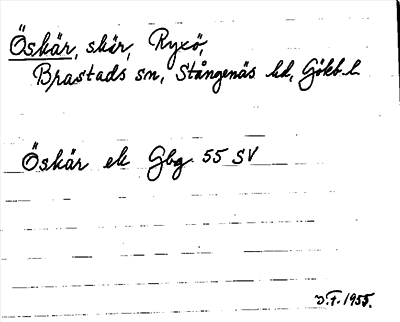 Öskär, skär, Ryxö,
Brastads sn, Stångenäs hd, Gökb. l.
Öskär ek Gbg 55 SV
O.F. 1955.